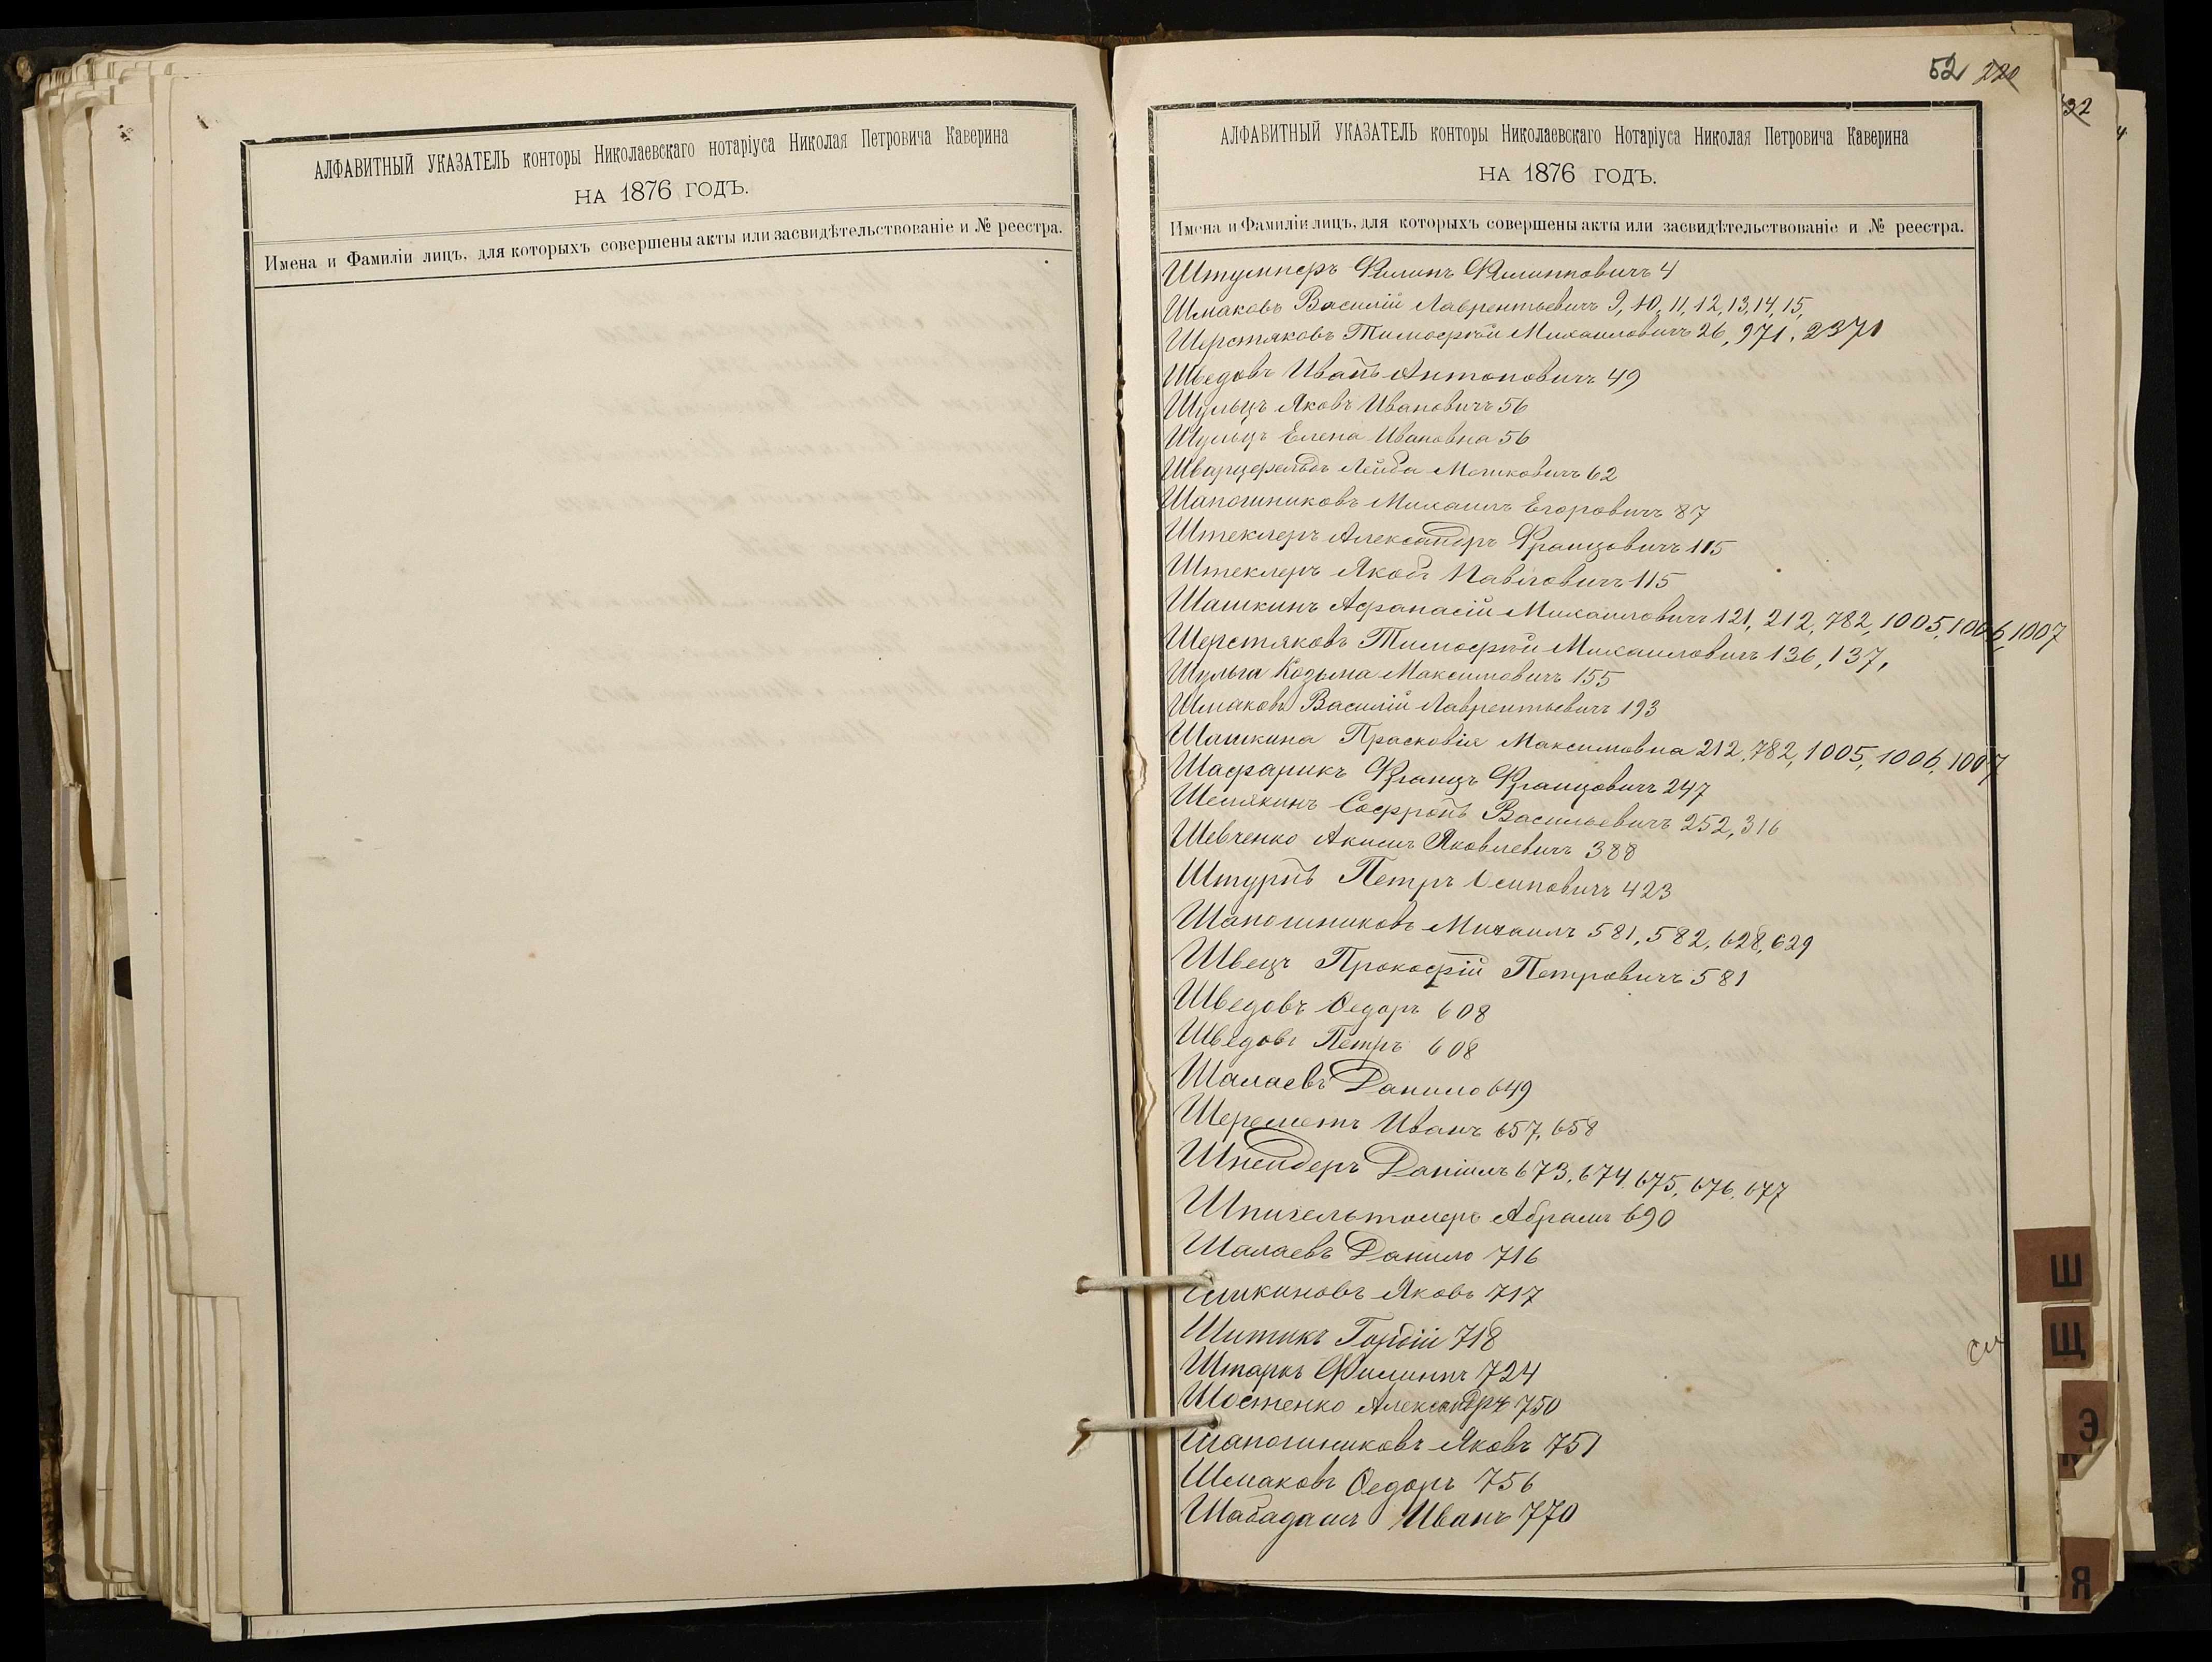 АЛФАВИТНЫЙ УКАЗАТЕЛЬ конторы Николаевскаго нотаріуса Николая Петровича Каверина
НА 1876 ГОДЪ.
Имена и Фамиліи лицъ, для которыхъ совершены акты или засвидѣтельствованіе и № реестра.
52 220
АЛФАВИТНЫЙ УКАЗАТЕЛЬ конторы Николаевскаго Нотаріуса Николая Петровича Каверина
НА 1876 ГОДЪ.
Имена и Фамиліи лицъ, для которыхъ совершены акты или засвидѣтельствованіе и № реестра.
Штумперъ Филипъ Филипповичъ 4
Шмаковъ Василій Лаврентьевичъ 9, 10, 11, 12, 13, 14, 15,
Шерстяковъ Тимофей Михаиловичъ 26, 971, 2371
Шведовъ Иванъ Антоновичъ 49
Шульцъ Яковъ Ивановичъ 56
Шульцъ Елена Ивановна 56
Шварцфельдъ Лейба Мошковичъ 62
Шапошниковъ Михаилъ Егоровичъ 87
Штеклеръ Александръ Францовичъ 115
Штеклеръ Якобъ Павловичъ 115
Шашкинъ Афанасій Михаиловичъ 121, 212, 782, 1005, 1006, 1007
Шерстяковъ Тимофей Михаиловичъ 136, 137,
Шульга Козьма Максимовичъ 155
Шмаковъ Василій Лаврентьевичъ 193
Шашкина Прасковія Максимовна 212, 782, 1005, 1006, 1007
Шафарикъ Францъ Францовичъ 247
Шемякинъ Софронъ Васильевичъ 252, 316
Шевченко Акимъ Яковлевичъ 388
Штурнъ Петръ Осиповичъ 423
Шапошниковъ Михаилъ 581, 582, 628, 629
Швецъ Прокофій Петровичъ 581
Шведовъ Ѳедоръ 608
Шведовъ Петръ 608
Шалаевъ Данило 649
Шереметъ Иванъ 657, 658
Шнейдеръ Даніилъ 673, 674, 675, 676, 677
Абрамъ 690
Шалаевъ Данило 716
Яковъ 717
Шитикъ Гордій 718
Штаркъ Филиппъ 724
Шостенко Александръ 750
Шапошниковъ Яковъ 751
Шмаковъ Ѳедоръ 756
Шабадашъ Иванъ 770
Ш
Щ
Э
Я